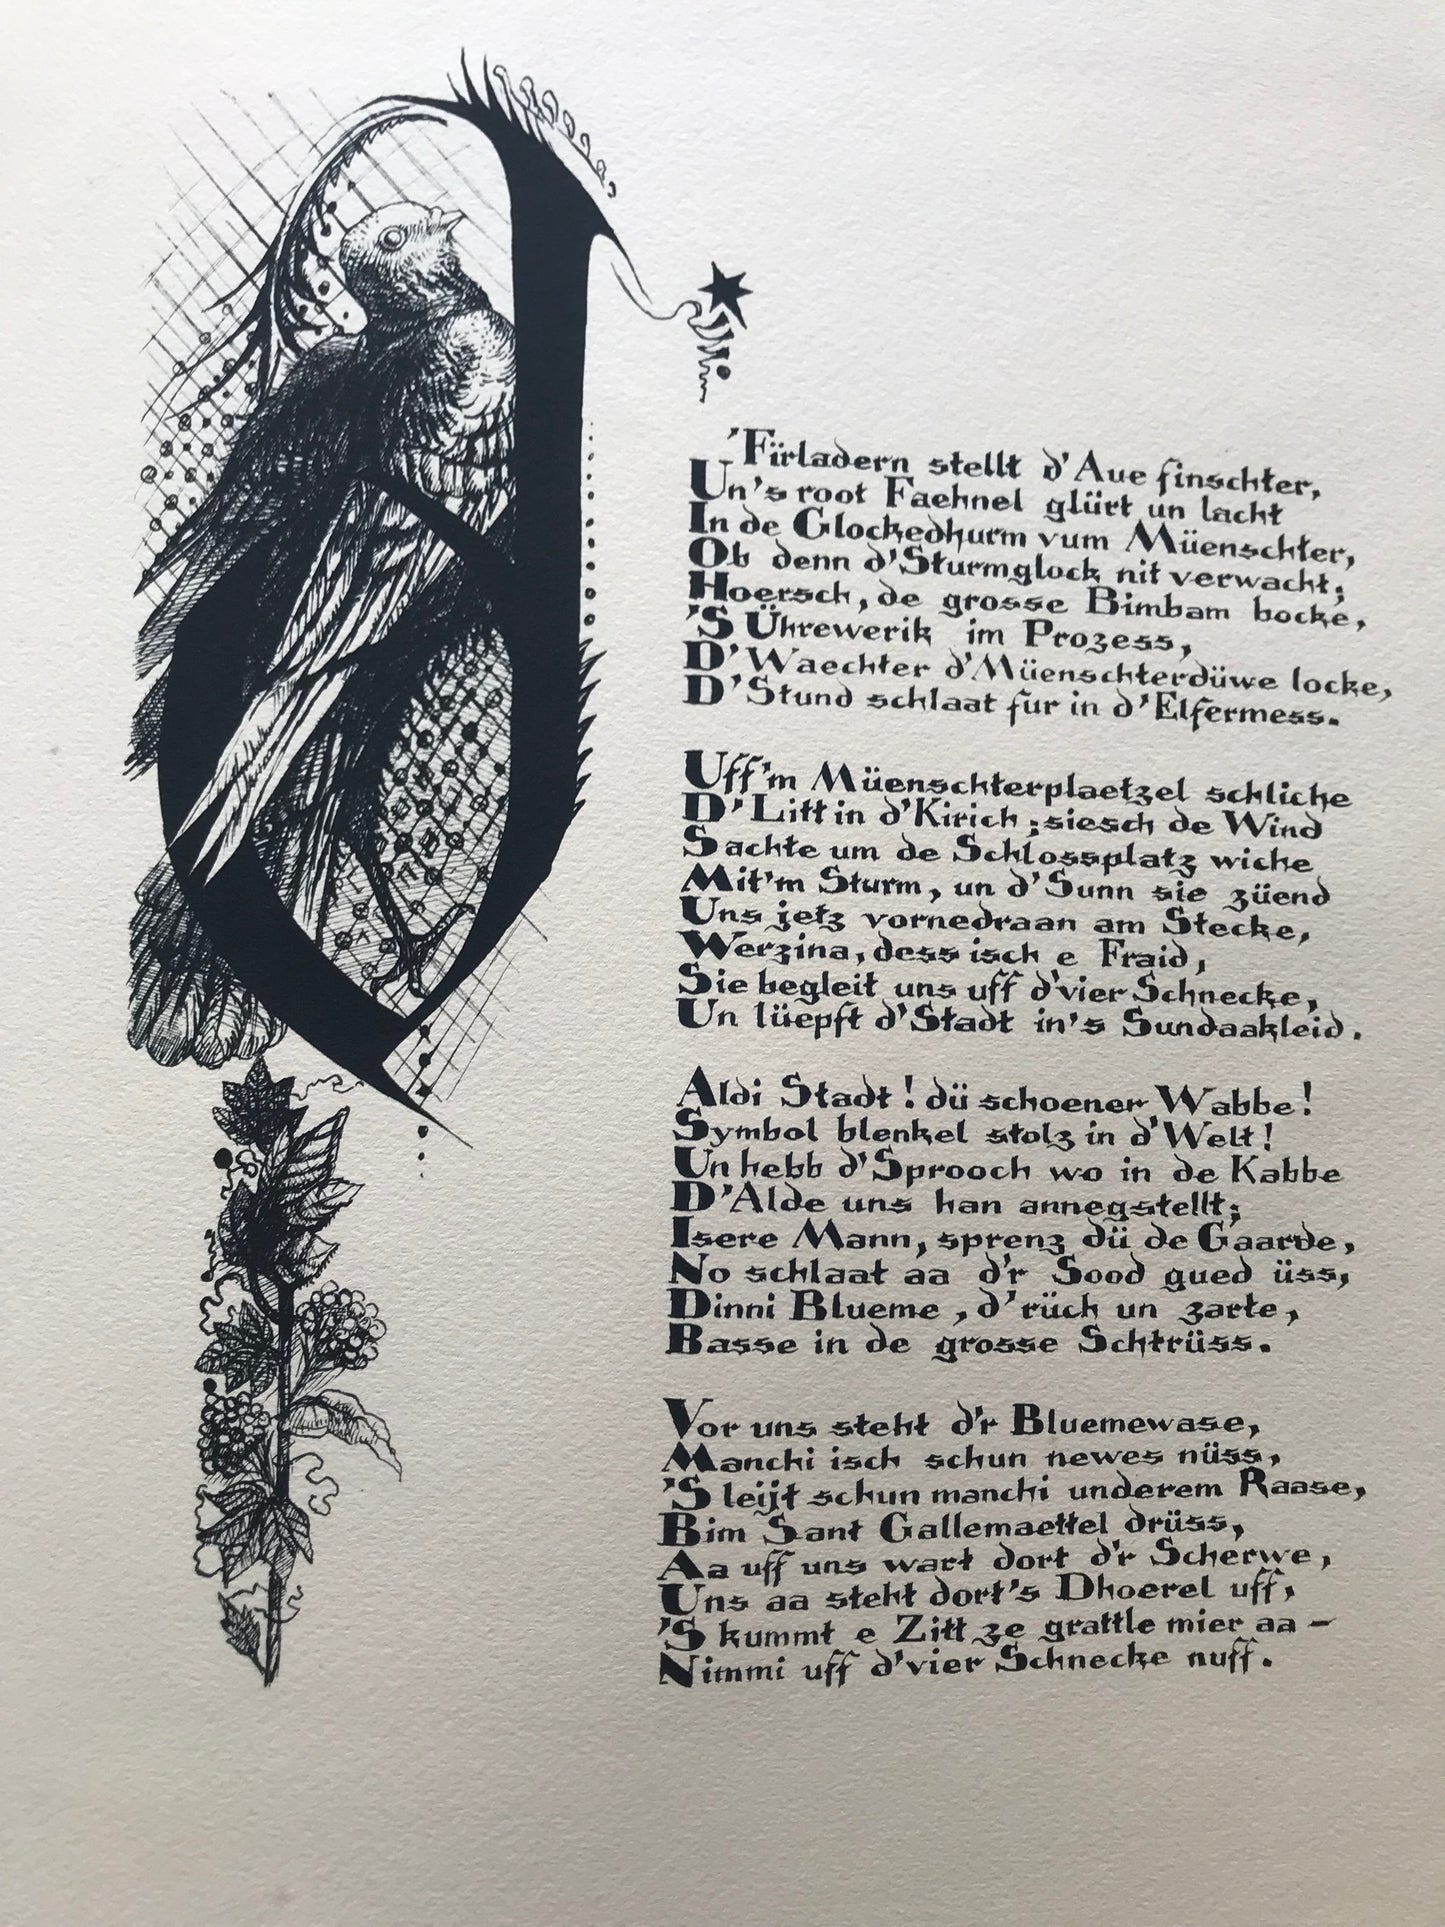 D
'Fïrladern stellt d'Aue finschter,
Un's root Faehnel glürt un lacht
In de Glockedhurm vum Müenschter,
Ob denn d'Sturmglock nit verwacht;
Hoersch, de grosse Bimbam bocke,
'S Ührewerik im Prozess,
D'Waechter d'Müenschterdüwe locke,
D'Stund schlaat fur in d'Elfermess.
Uff'm Müenschterplaetzel schliche
D'Litt in d'Kirich; siesch de Wind
Sachte um de Schlossplatz wiche
Mit'm Sturm, un d'Sunn sie züend
Uns jetz vornedraan am Stecke,
Werzina, dess isch e Fraid,
Sie begleit uns uff d'vier Schnecke,
Un lüepft d'Stadt in's Sundaakleid.
Aldi Stadt! dü schoener Wabbe!
Symbol blenkel stolz in d'Welt!
Un hebb d'Sprooch wo in de Kabbe
D'Alde uns han annegstellt;
Isere Mann, sprenz dü de Gaarde,
No schlaat aa d'r Sood gued üss,
Dinni Blueme, d'rüch un zarte,
Basse in de grosse Schtrüss.
Vor uns steht d'r Bluemewase,
Manchi isch schun newes nüss,
'S leijt schun manchi underem Raase,
Bim Sant Gallemaettel drüss,
Aa uff uns wart dort d'r Scherwe,
Uns aa steht dort's Dhoerel uff,
'S kummt e Zitt ze grattle mier aa -
Nimmi uff d'vier Schnecke nuff.